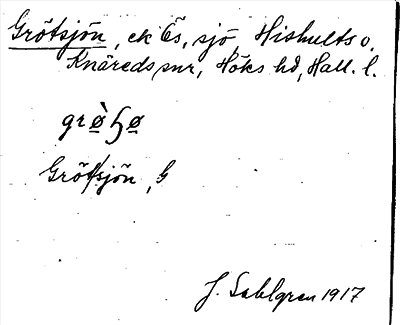 Grötsjön, ek Ös, sjö, Hishults o.
Knäreds snr, Höks hd, Hall. l.
grø̀ɧø
Gröt/sjön, G
J. Sahlgren 1917